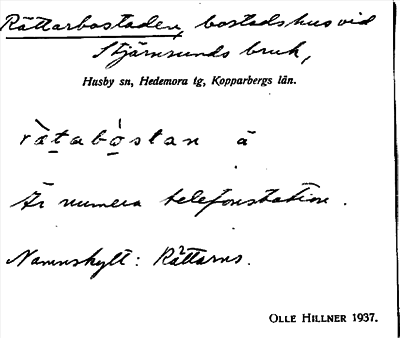 Rättarbostaden, bostadshus vid
Stjärnsunds bruk,
Husby sn, Hedemora tg, Kopparbergs län.
ràtabóstan ä
Är numera telefonstation.
Namnskylt: Rättarns.
OLLE HILLNER 1937.